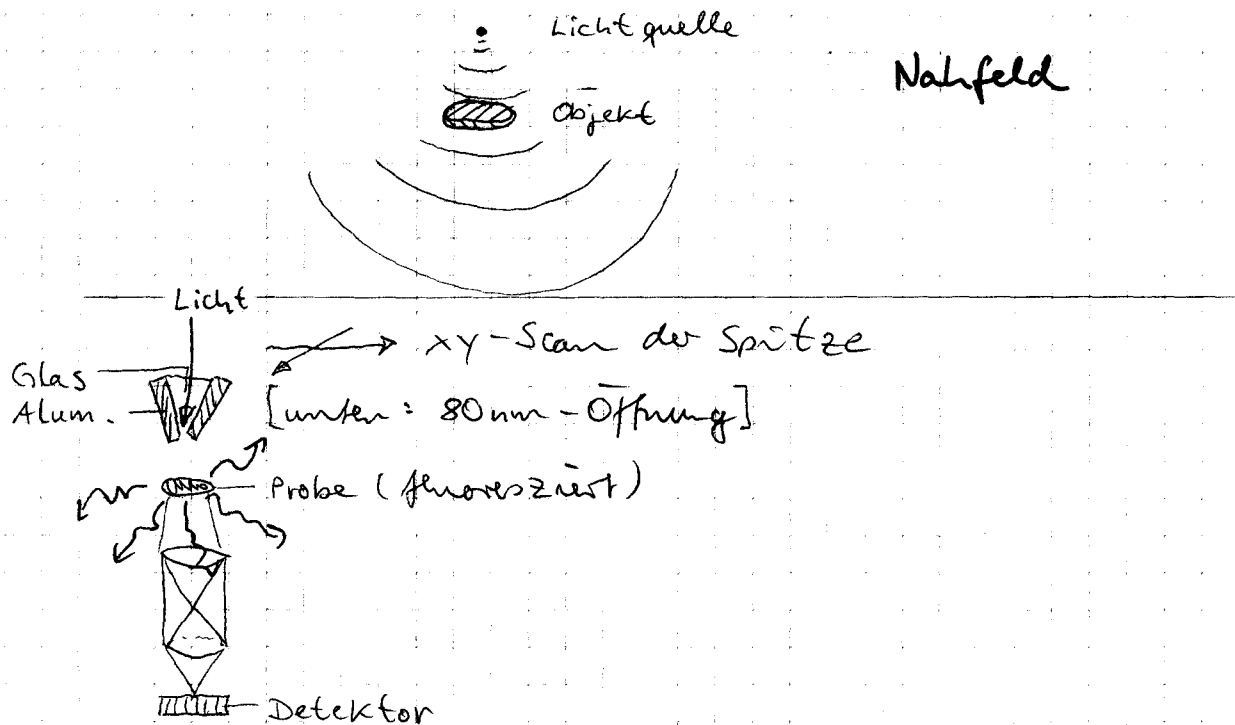 Lichtquelle
Nahfeld
Objekt
Licht
xy-Scan der Spitze
Glas
Alum.
[unten: 80nm-Öffnung]
Probe (fluoresziert)
Detektor